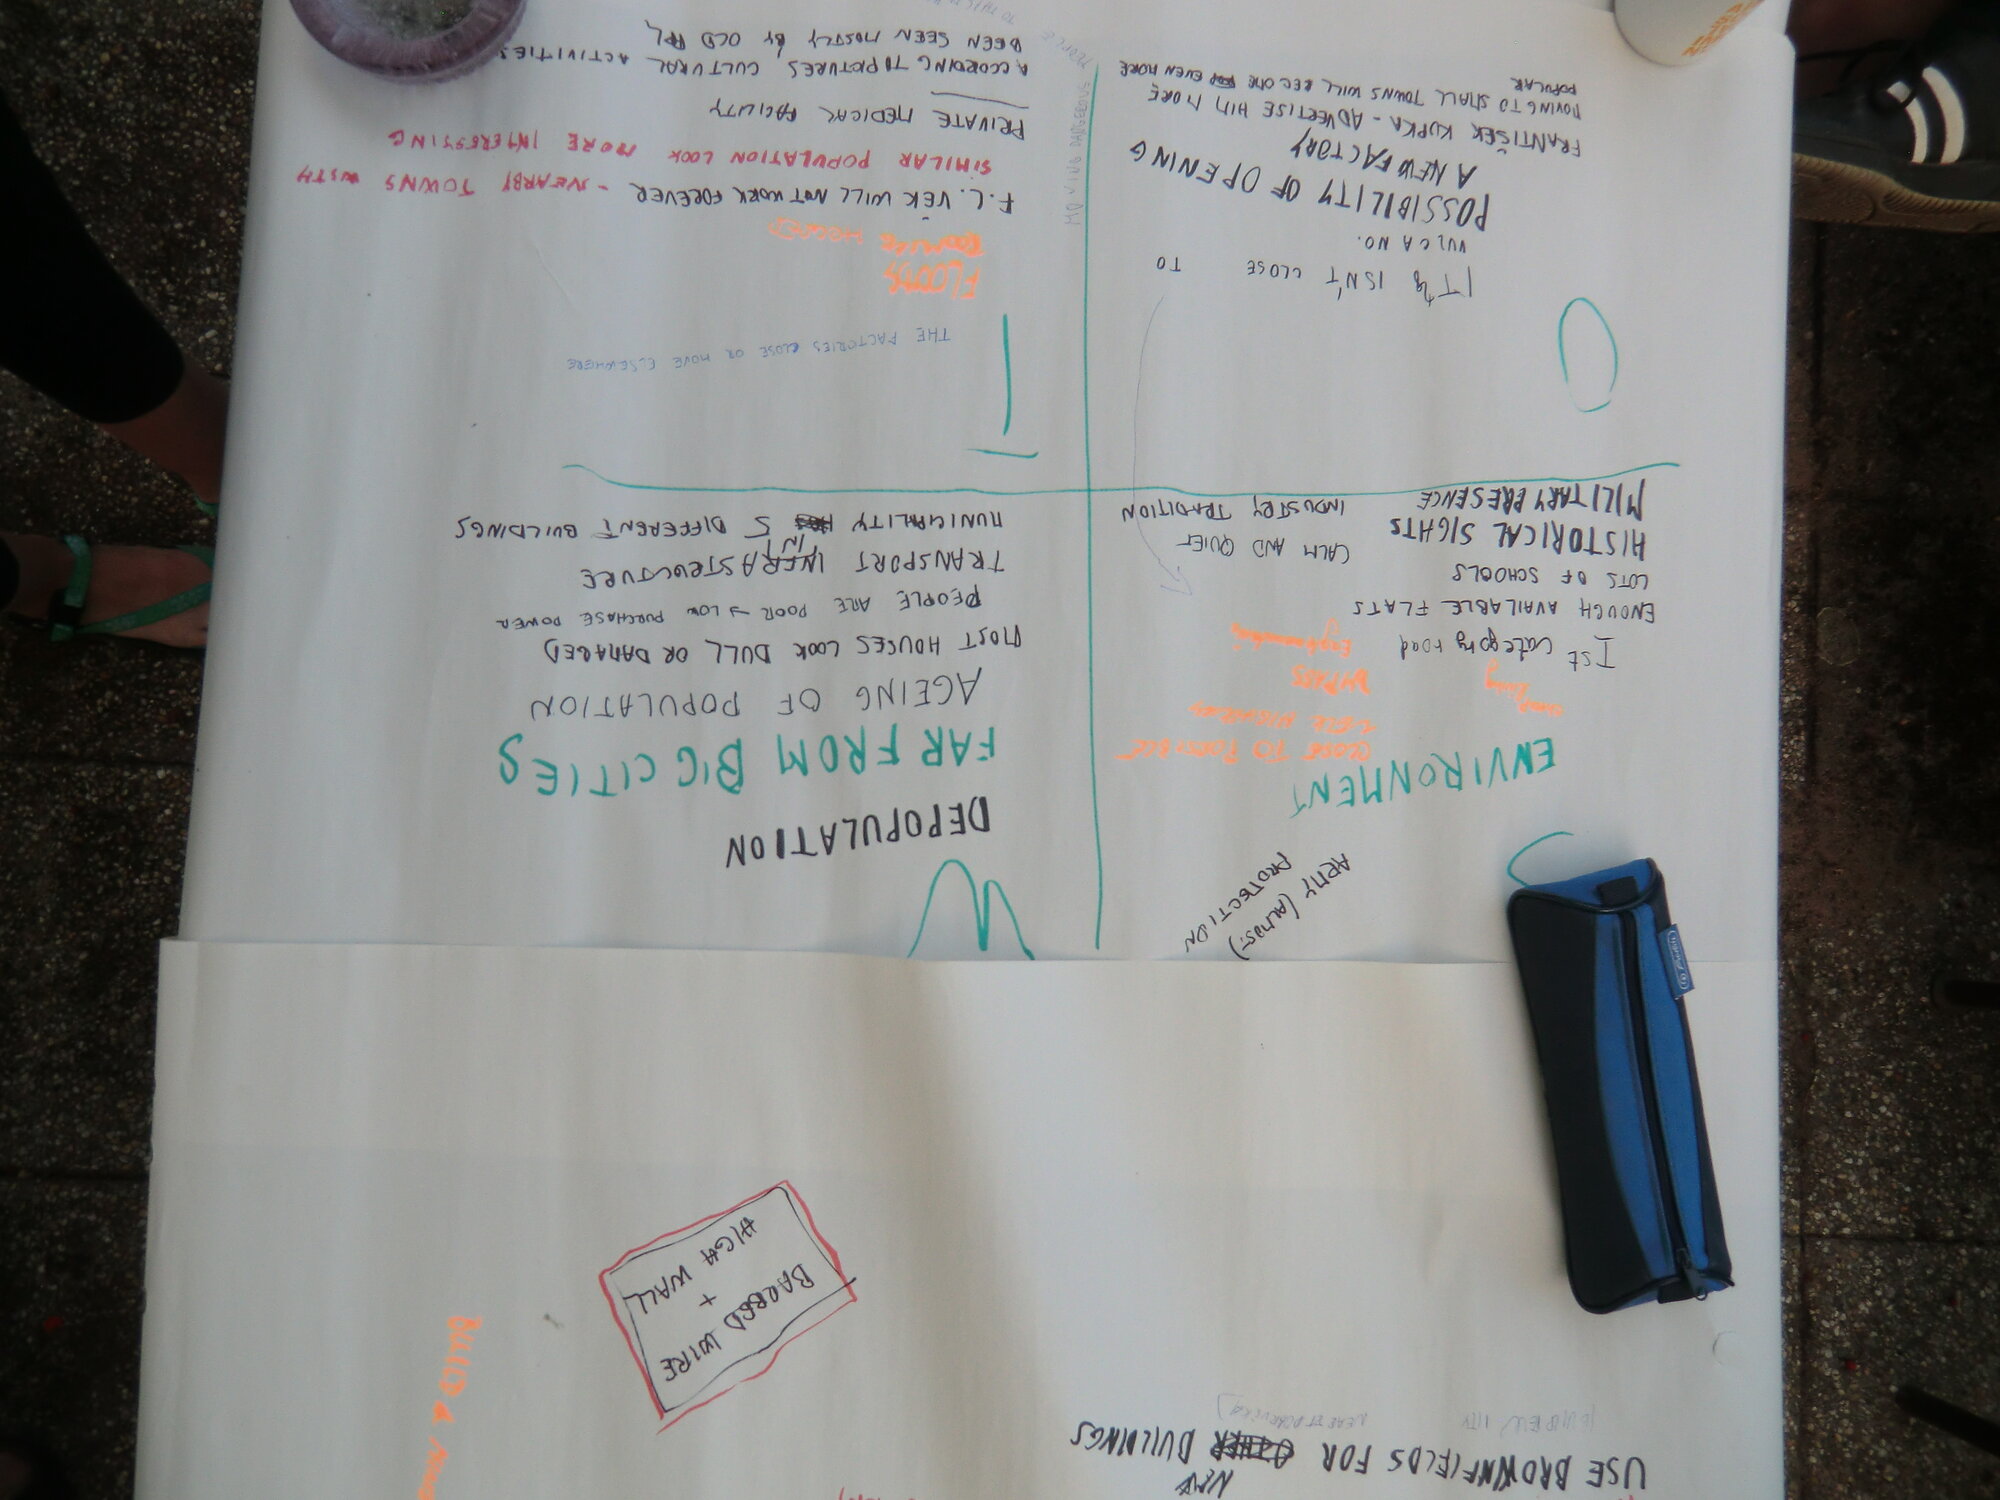 USE BROWNFIELDS FOR NEW BUILDINGS
BARBED WIRE
+
HIGH WALL
BUILD A
ARMY (ALMOST)
PROTECTION
ENVIRONMENT
CLOSE TO POSSIBLE
BYPASS
Ist category road
ENOUGH AVAILABLE FLATS
LOTS OF SCHOOLS
CALM AND QUIET
HISTORICAL SIGHTS
INDUSTRY TRADITION
MILITARY PRESENCE
W
DEPOPULATION
FAR FROM BIG CITIES
AGEING OF POPULATION
MOST HOUSES LOOK DULL OR DAMAGED
PEOPLE ARE POOR → LOW PURCHASE POWER
TRANSPORT INFRASTRUCTURE
MUNICIPALITY IN 5 DIFFERENT BUILDINGS
O
IT ISN'T CLOSE TO
VULCANO.
POSSIBILITY OF OPENING
A NEW FACTORY
FRANTIŠEK KUPKA - ADVERTISE HIM MORE
MOVING TO SMALL TOWNS WILL BECOME EVEN MORE
POPULAR
T
THE FACTORIES CLOSE OR MOVE ELSEWHERE
FLOODS
F.L. VĚK WILL NOT WORK FOREVER - NEARBY TOWNS WITH
SIMILAR POPULATION LOOK MORE INTERESTING
PRIVATE MEDICAL FACILITY
ACCORDING TO PICTURES, CULTURAL ACTIVITIES
BEEN SEEN MOSTLY BY OLD PPL
MOVING DANGEROUS PEOPLE
TO THIS